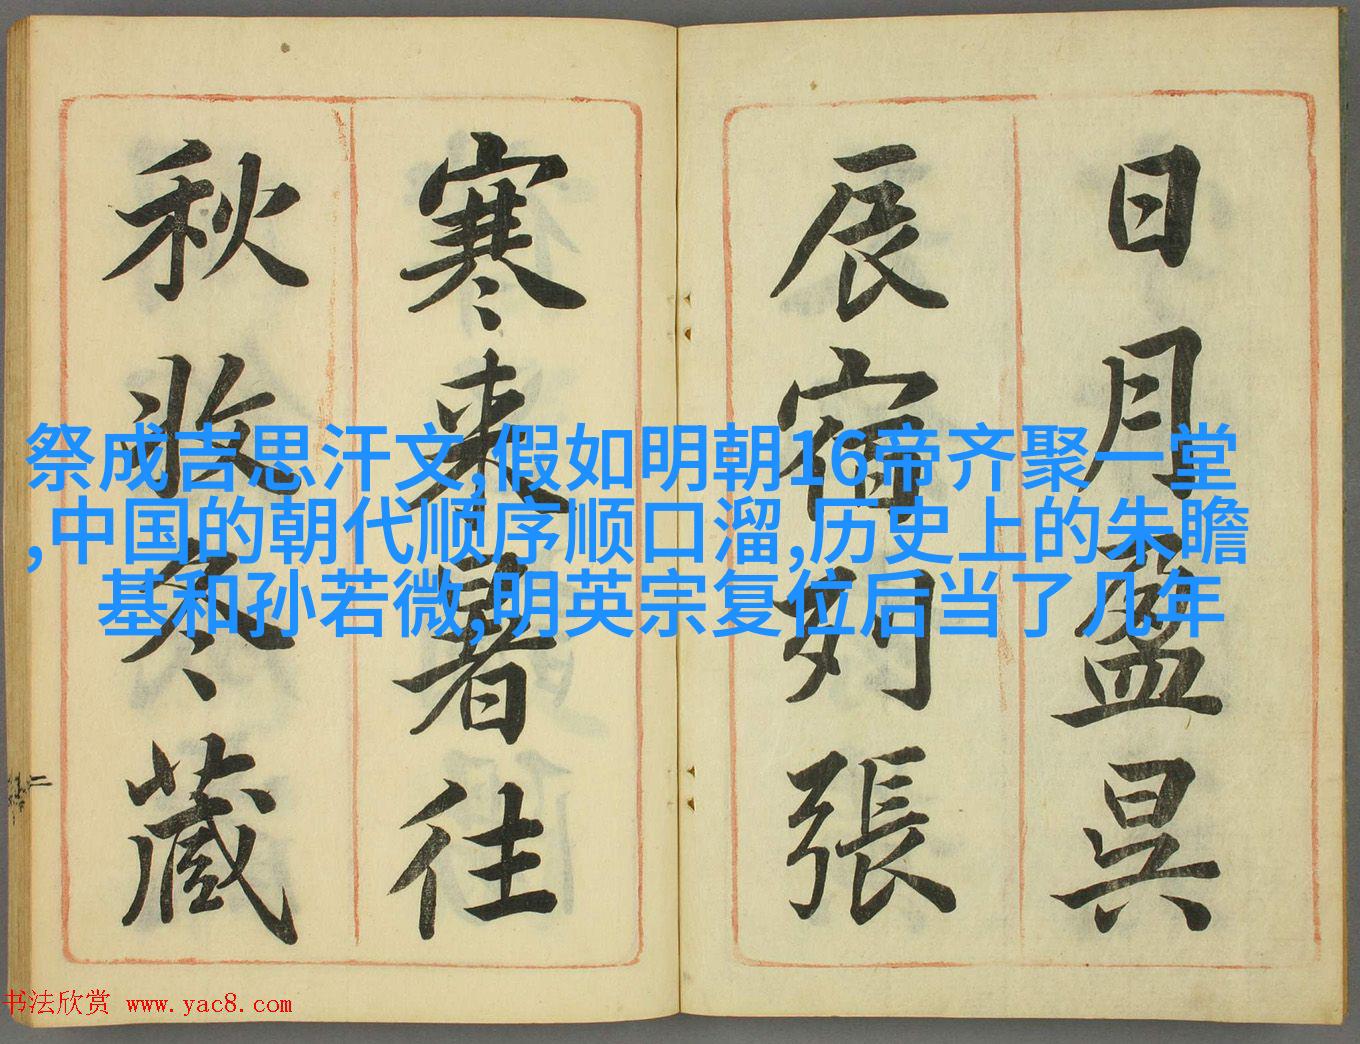 日月盈昃
辰宿列張
寒來暑往
秋收冬藏
祭成吉思汗文,假如明朝16帝齐聚一堂
,中国的朝代顺序顺口溜,历史上的朱瞻
基和孙若微,明英宗复位后当了几年
书法欣赏 www.yac8.com